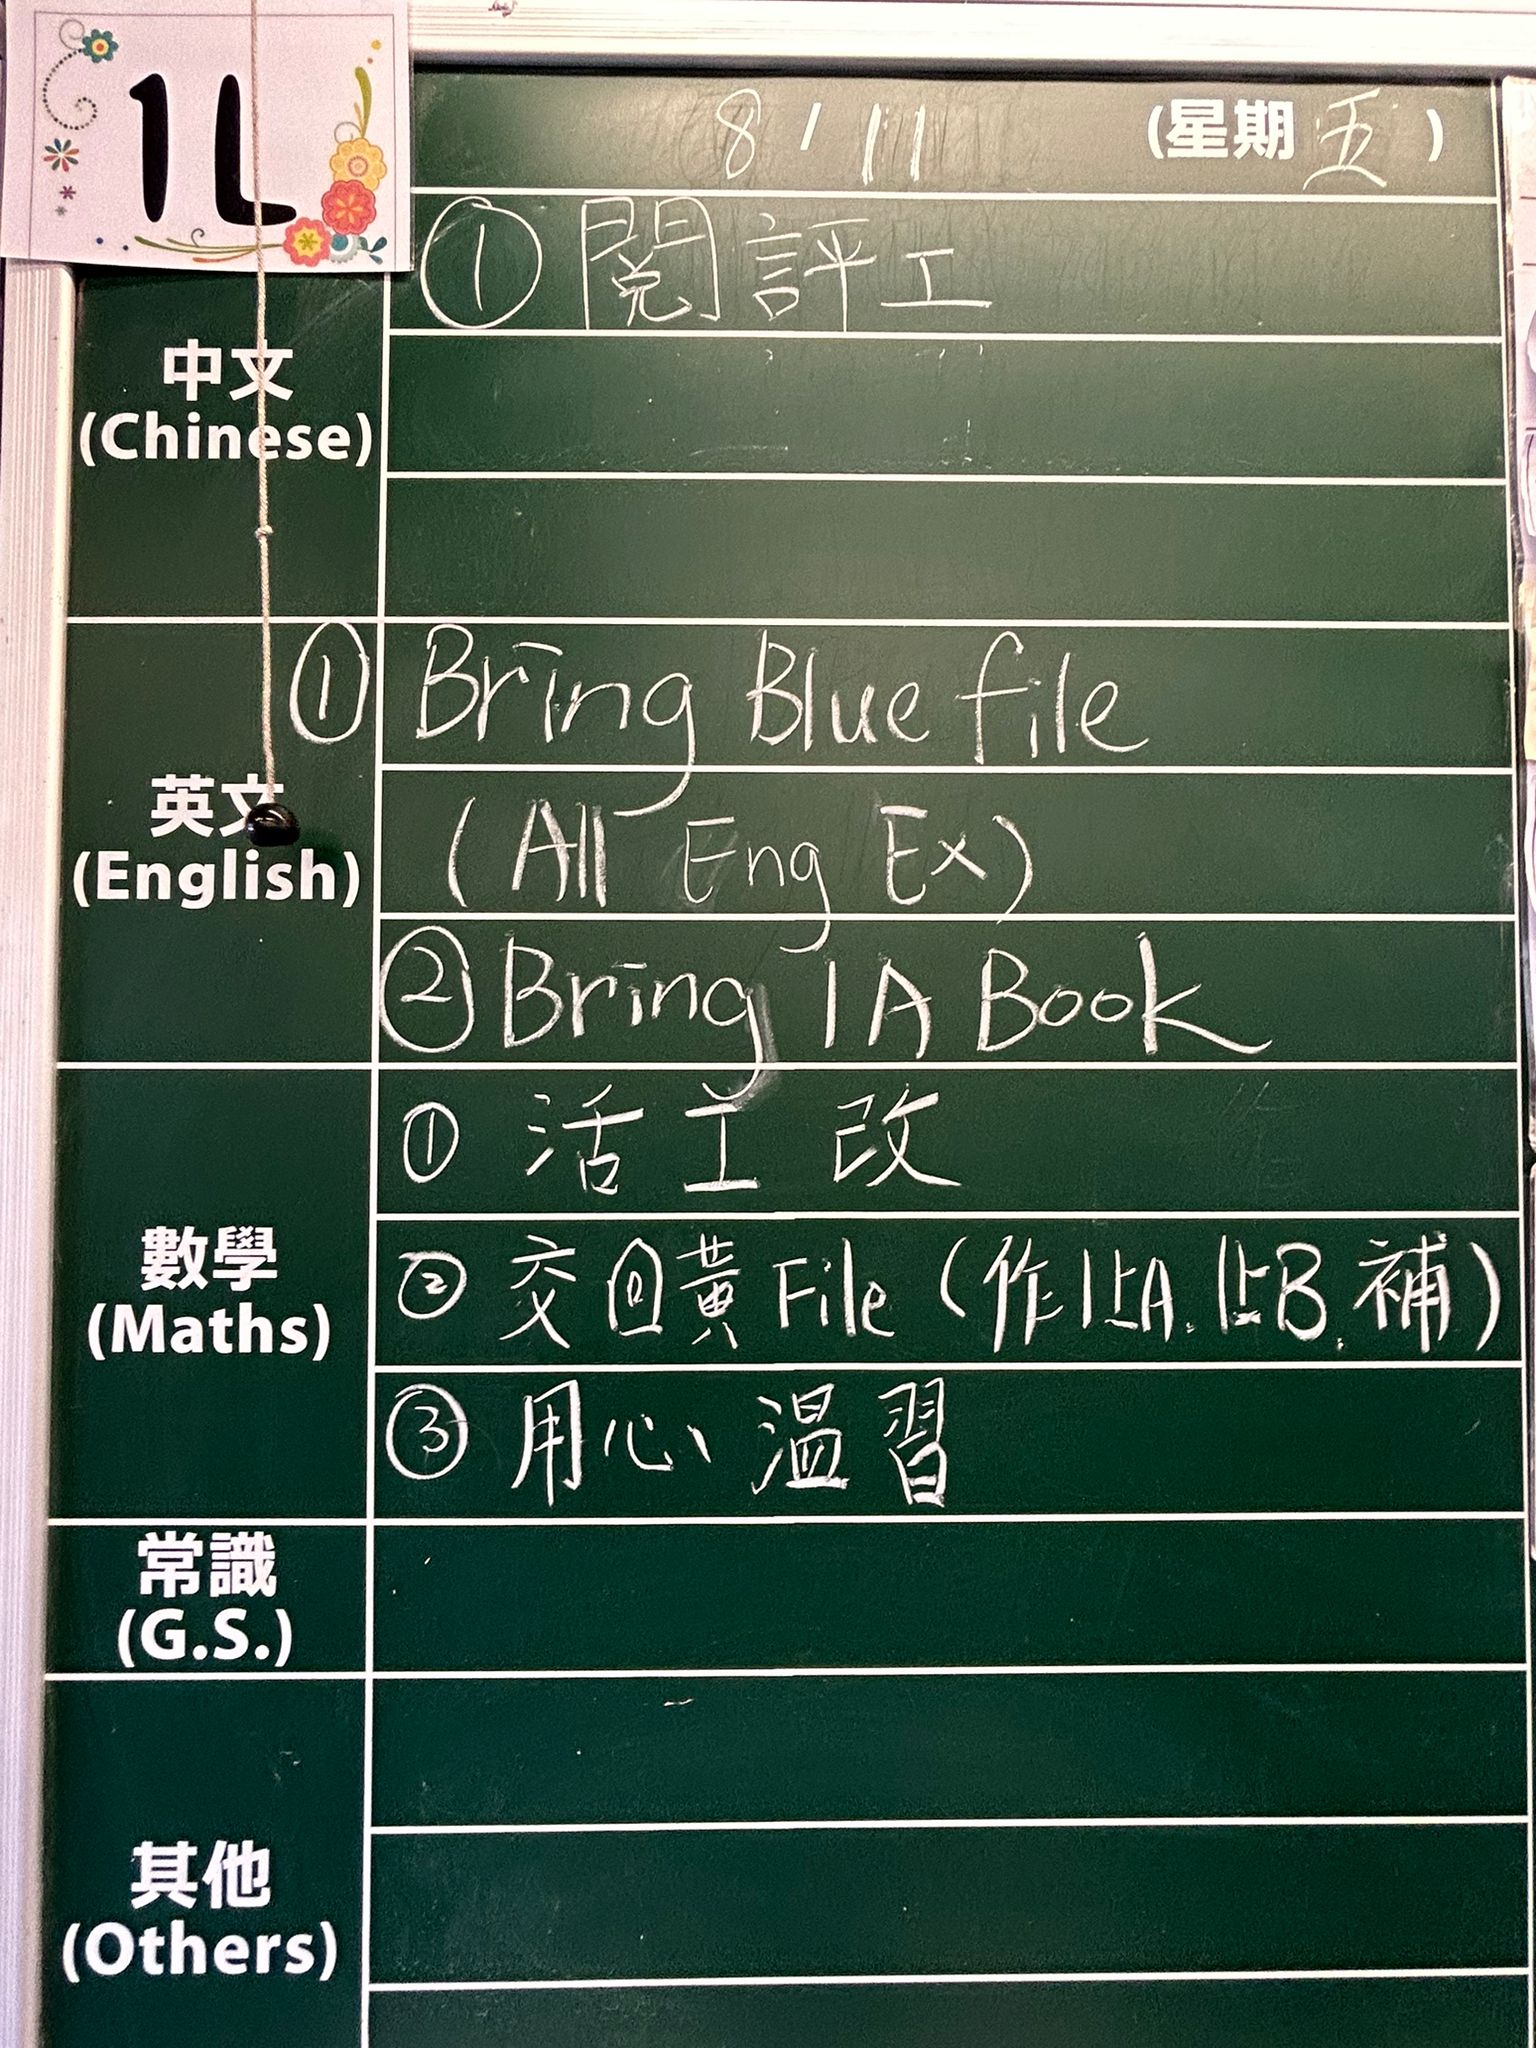 1L
8/11 (星期五)
中文
(Chinese)
① 閱評工
英文
(English)
① Bring Blue file
(All Eng Ex)
② Bring 1A Book
數學
(Maths)
① 活工改
② 交回黃File (作1上A. 1上B. 補)
③ 用心溫習
常識
(G.S.)
其他
(Others)